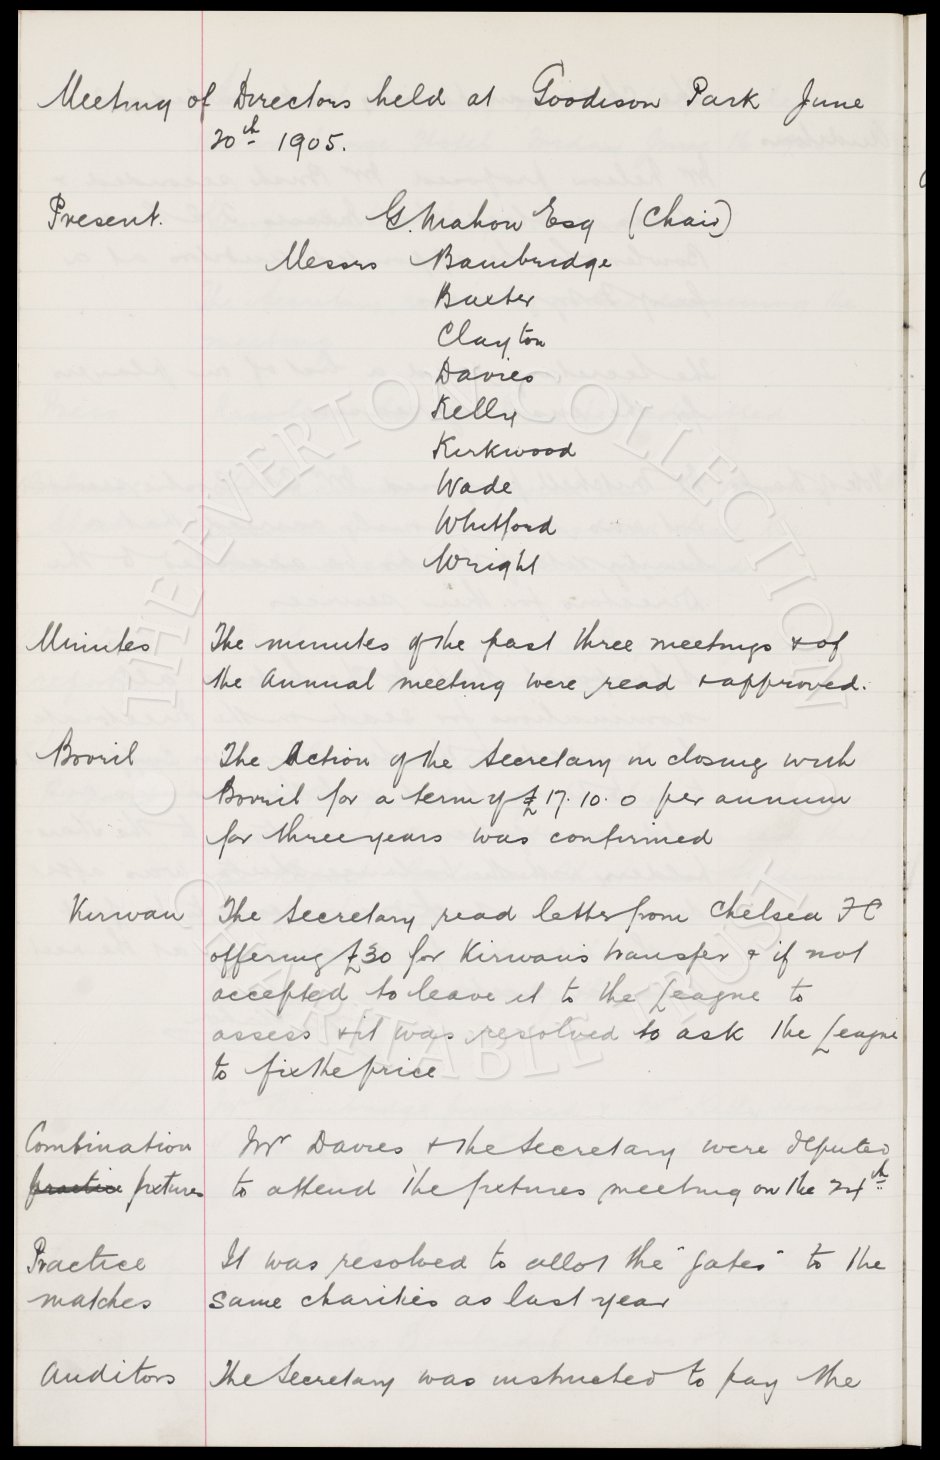 Meeting of Directors held at Goodison Park June
20th 1905.
Present. G. Mahon Esq (Chair)
Messrs Bainbridge
Baxter
Clayton
Davies
Kelly
Kirkwood
Wade
Whitford
Wright
Minutes The minutes of the past three meetings & of
the Annual meeting were read & approved.
Bovril The Action of the Secretary in closing with
Bovril for a term of £17.10.0 per annum
for three years was confirmed
Kirwan The Secretary read letter from Chelsea FC
offering £30 for Kirwan's transfer & if not
accepted to leave it to the League to
assess & it was resolved to ask the League
to fix the price
Combination Mr Davies & the Secretary were deputed
practice fixtures to attend the fixtures meeting on the 24th
Practice It was resolved to allot the "gates" to the
matches same charities as last year
Auditors The Secretary was instructed to pay the
© THE EVERTON COLLECTION
CHARITABLE TRUST